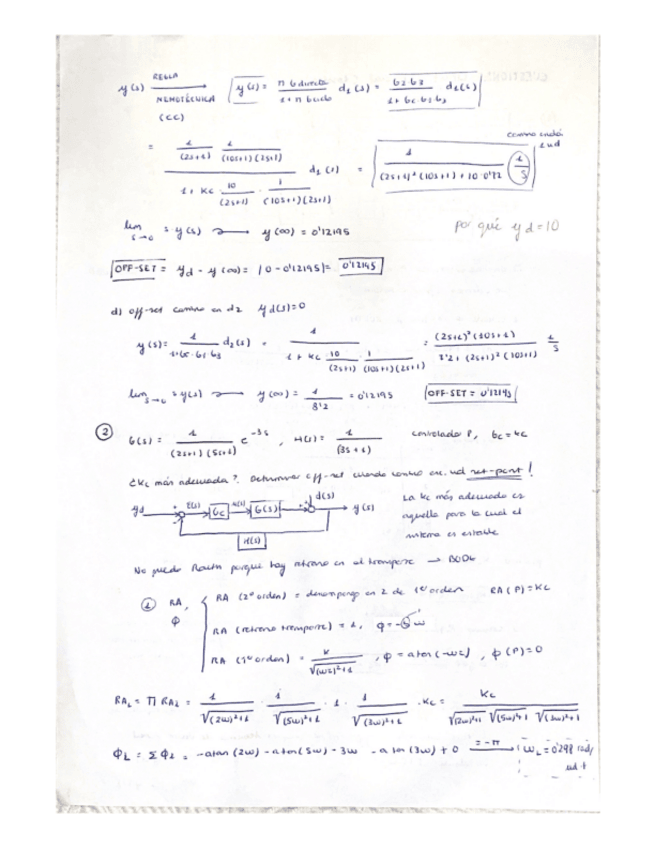 REGLA
y(s) → y(s) = n G directa / 1 + n bucle d1(s) = G2·G3 / 1 + Gc·G2·G3 d1(s)
NEMOTÉCNICA
(CC)
cambio
1 ud
= 1/(2s+1) 1/(10s+1)(2s+1) / 1 + Kc 10/(2s+1) · 1/(10s+1)(2s+1) d1(s) = 1 / (2s+1)²(10s+1) + 10·0'72 1/s
lim s→0 s y(s) → y(∞) = 0'12195
por qué yd=10
OFF-SET = yd - y(∞) = |0 - 0'12195| = 0'12195
d) off-set cambio en d2 yd(s)=0
y(s) = 1 / 1+Gc·G1·G3 d2(s) = 1 / 1 + Kc 10/(2s+1) · 1/(10s+1)(2s+1) = (2s+1)²(10s+1) / 7'2 + (2s+1)²(10s+1) 1/s
lim s→0 s y(s) → y(∞) = 1/8'2 = 0'12195 OFF-SET = 0'12195
② G(s) = 1/(2s+1)(5s+1) e^-3s , H(s) = 1/(3s+1) controlador P, Gc = Kc
¿Kc más adecuada? Determinar off-set cuando cambio en 1 ud set-point!
yd E(s) Gc G(s) d(s) y(s)
H(s)
La Kc más adecuada es
aquella para la cual el
sistema es estable
No puedo Routh porque hay retraso en el transporte → BODE
① RA, Φ
RA (2º orden) = descompongo en 2 de 1er orden RA (P) = Kc
RA (retraso transporte) = 1, φ = -θω
RA (1er orden) = K/√(ωτ)²+1 , φ = atan (-ωτ) , φ (P) = 0
RAL = Π RAi = 1/√(2ω)²+1 · 1/√(5ω)²+1 · 1 · 1/√(3ω)²+1 · Kc = Kc/√(2ω)²+1 √(5ω)²+1 √(3ω)²+1
ΦL = Σ Φi = -atan (2ω) - atan (5ω) - 3ω - atan (3ω) + 0 = -π → ωc = 0'298 rad/
ud t